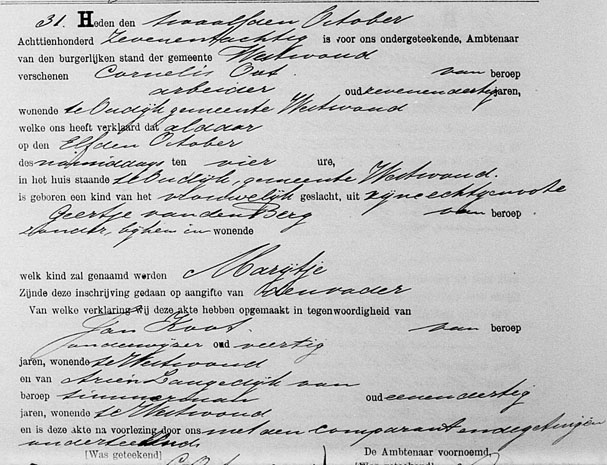 31. Heden den twaalfden October
Achttienhonderd zevenentachtig is voor ons ondergeteekende, Ambtenaar
van den burgerlijken stand der gemeente Westwoud
verschenen Cornelis Oot van beroep
arbeider oud zevenendertig jaren,
wonende te Oudijk gemeente Westwoud
welke ons heeft verklaard dat aldaar
op den Elfden October
des namiddags ten vier ure,
in het huis staande te Oudijk, gemeente Westwoud.
is geboren een kind van het vrouwelijk geslacht, uit zijne echtgenoote
Geertje van den Berg van beroep
zonder, bij hem in wonende
welk kind zal genaamd worden Marijtje
Zijnde deze inschrijving gedaan op aangifte van den vader
Van welke verklaring wij deze akte hebben opgemaakt in tegenwoordigheid van
Jan Koot. van beroep
onderwijzer oud veertig
jaren, wonende te Westwoud
en van Arien Langedijk van
beroep timmerman oud eenendertig
jaren, wonende te Westwoud
en is deze akte na voorlezing door ons met den comparant en de getuigen
onderteekend.
[Was geteekend] De Ambtenaar voornoemd,
[Was geteekend]